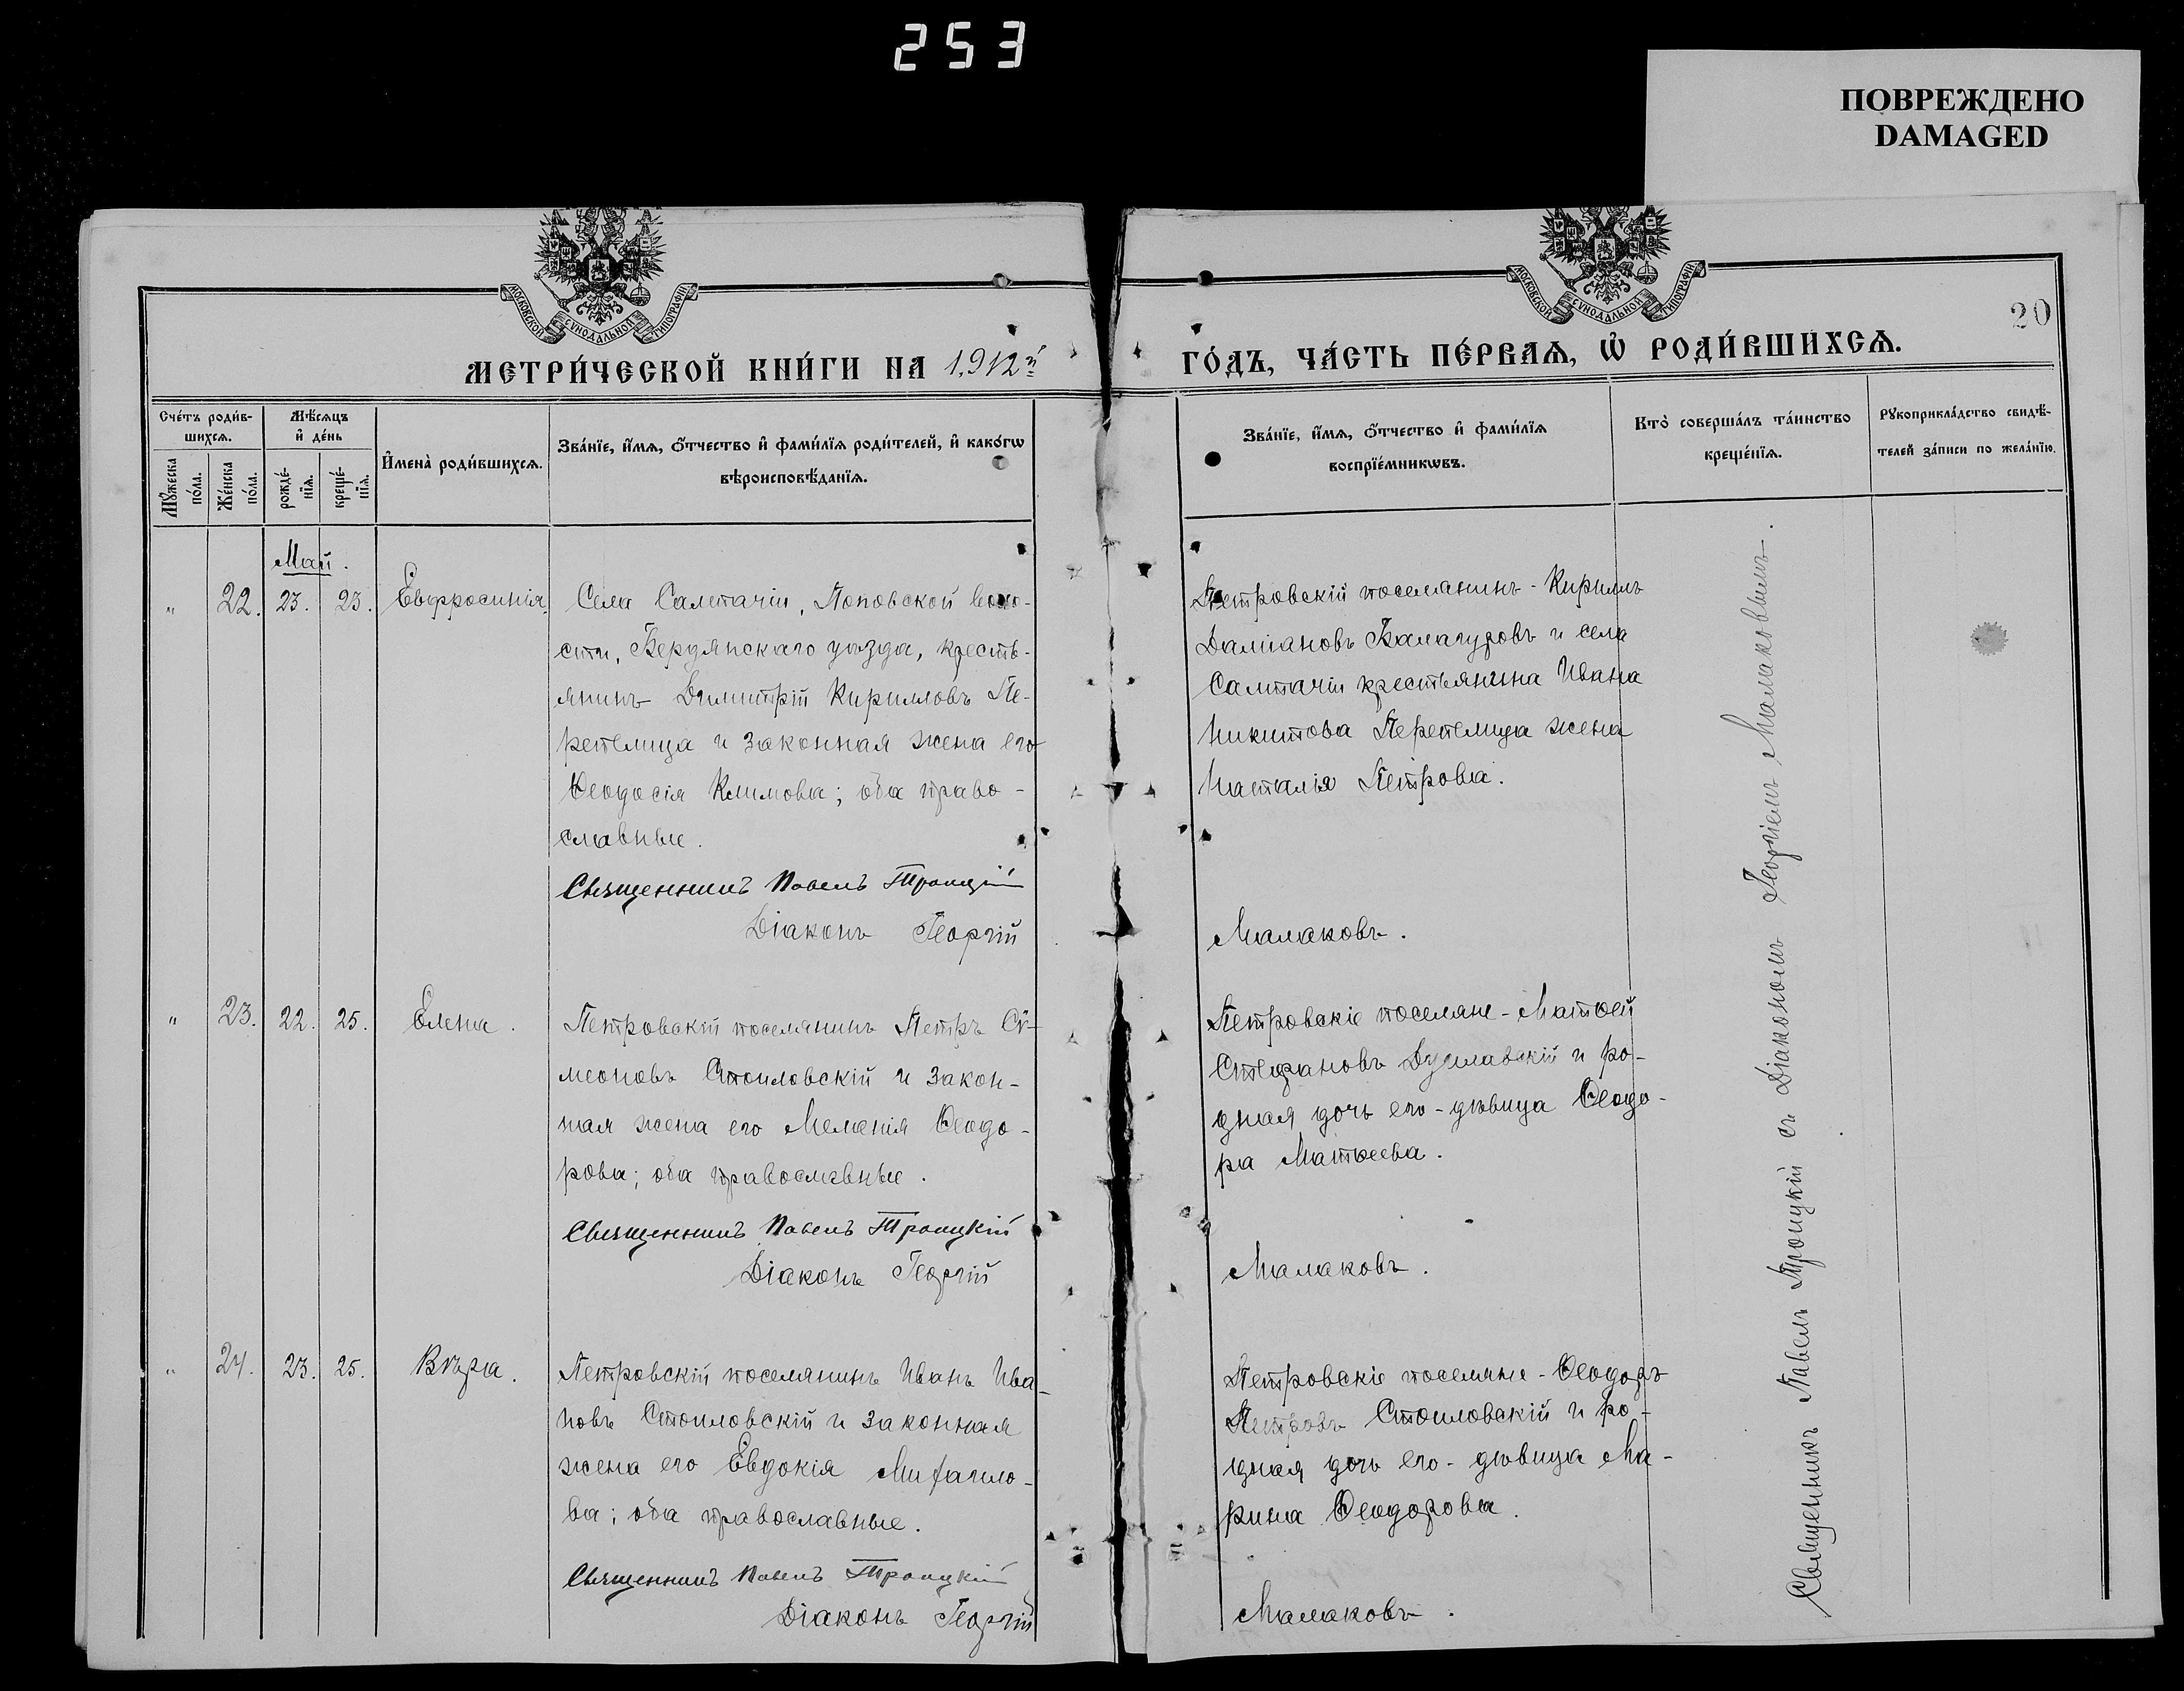 253
ПОВРЕЖДЕНО
DAMAGED
МОСКОВСКОЙ СѴНОДАЛЬНОЙ ТИПОГРАФІИ
МОСКОВСКОЙ СѴНОДАЛЬНОЙ ТИПОГРАФІИ
20
МЕТРИ́ЧЕСКОЙ КНИ́ГИ НА 1912й ГО́ДЪ, ЧА́СТЬ ПЕ́РВАѦ, Ѡ҆ РОДИ́ВШИХСѦ.
Сче́тъ роди́в-
шихсѧ.
Мꙋ́жеска
по́ла.
Же́нска
по́ла.
Мѣ́сѧцъ
и҆ де́нь
рожде́-
нїѧ.
креще́-
нїѧ.
И҆мена̀ роди́вшихсѧ.
Зва́нїе, и҆́мѧ, ѻ҆́тчество и҆ фами́лїѧ роди́телей, и҆ како́гѡ
вѣроисповѣ́данїѧ.
Зва́нїе, и҆́мѧ, ѻ҆́тчество и҆ фами́лїѧ
воспрїе́мникѡвъ.
Кто̀ соверша́лъ та́инство
креще́нїѧ.
Рꙋкоприкла́дство свидѣ́-
телей за́писи по жела́нїю.
Май.
„ 22. 23. 23. Евфросинія.
Села Салтачіи, Поповской воло-
сти, Бердянскаго уѣзда, кресть-
янинъ Димитрій Кирилловъ Пе-
репелица и законная жена его
Ѳеодосія Климова; оба право-
славные.
Священникъ Павелъ Троицкій
Діаконъ Георгій
Петровскій поселянинъ - Кириллъ
Даміановъ Балагуровъ и села
Салтачіи крестьянина Ивана
Никитова Перепелица жена
Наталія Петрова.
Малаковъ.
„ 23. 22. 25. Елена.
Петровскій поселянинъ Петръ Сѵ-
меоновъ Стоиловскій и закон-
ная жена его Меланія Ѳеодо-
рова; оба православные.
Священникъ Павелъ Троицкій
Діаконъ Георгій
Петровскіе поселяне - Матѳей
Стефановъ Дуславскій и ро-
дная дочь его - дѣвица Ѳеодо-
ра Матѳеева.
Малаковъ.
„ 24. 23. 25. Вѣра.
Петровскій поселянинъ Иванъ Ива-
новъ Стоиловскій и законная
жена его Евдокія Михаило-
ва; оба православные.
Священникъ Павелъ Троицкій
Діаконъ Георгій
Петровскіе поселяне - Ѳеодоръ
Петровъ Стоиловскій и ро-
дная дочь его - дѣвица Ма-
рина Ѳеодорова.
Малаковъ.
Священникъ Павелъ Троицкій съ Діакономъ Георгіемъ Малаковымъ.